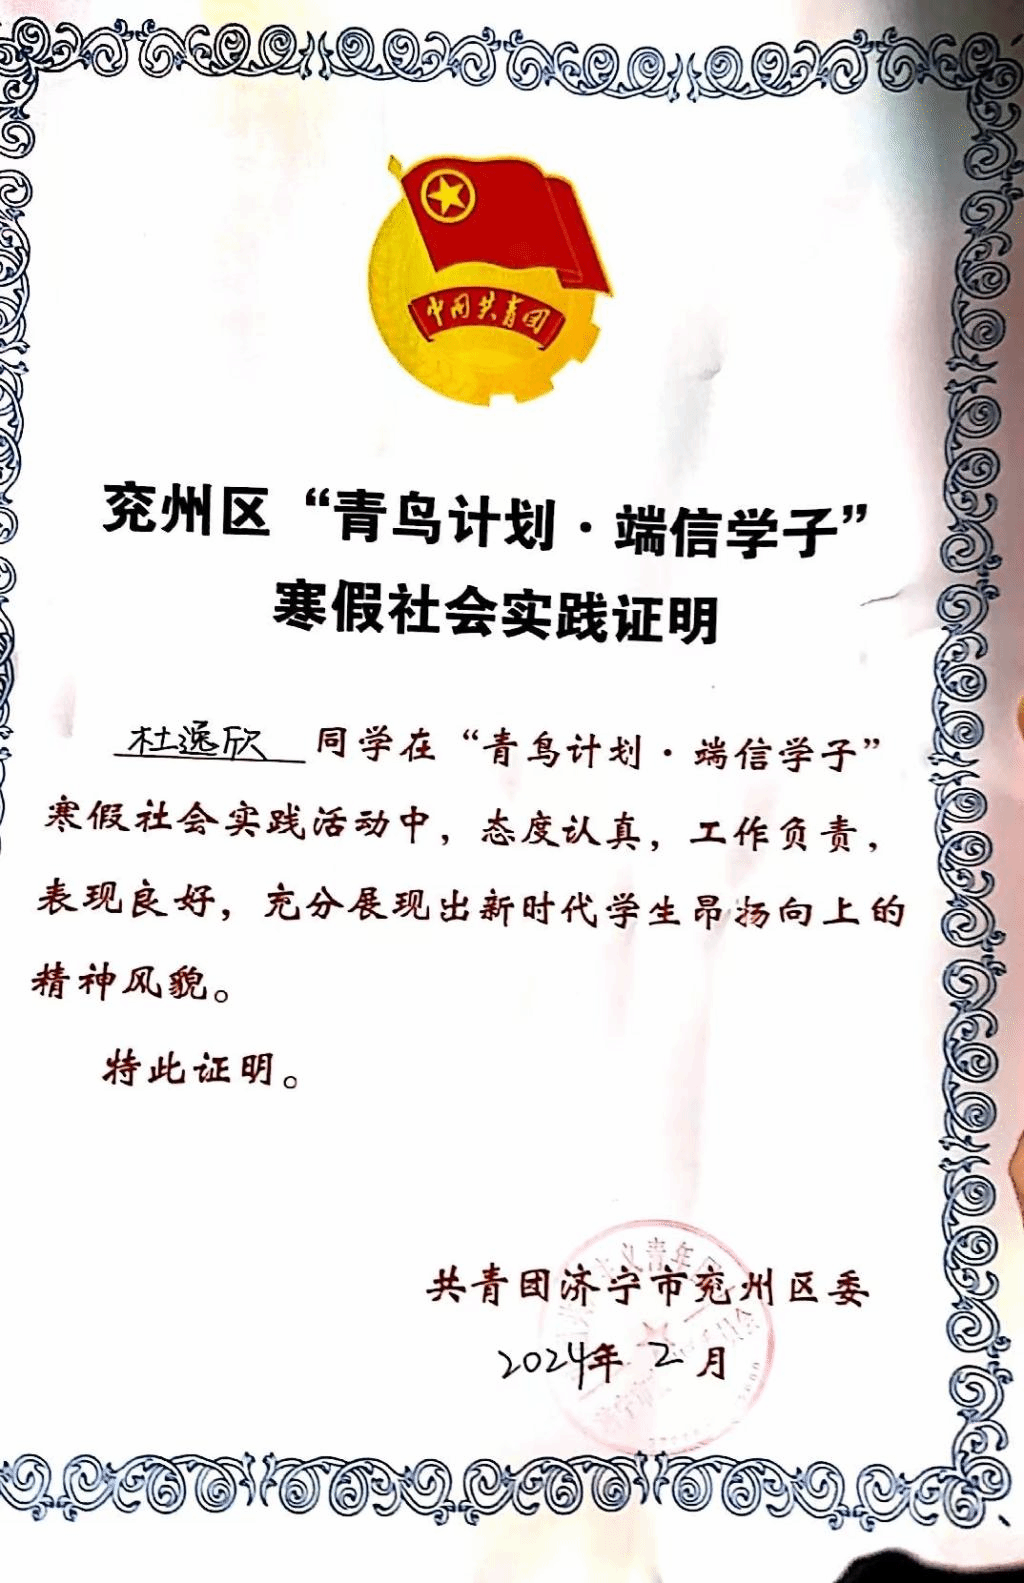 中国共青团
兖州区“青鸟计划·端信学子”
寒假社会实践证明
杜逸欣 同学在“青鸟计划·端信学子”
寒假社会实践活动中，态度认真，工作负责，
表现良好，充分展现出新时代学生昂扬向上的
精神风貌。
特此证明。
共青团济宁市兖州区委
2024年2月